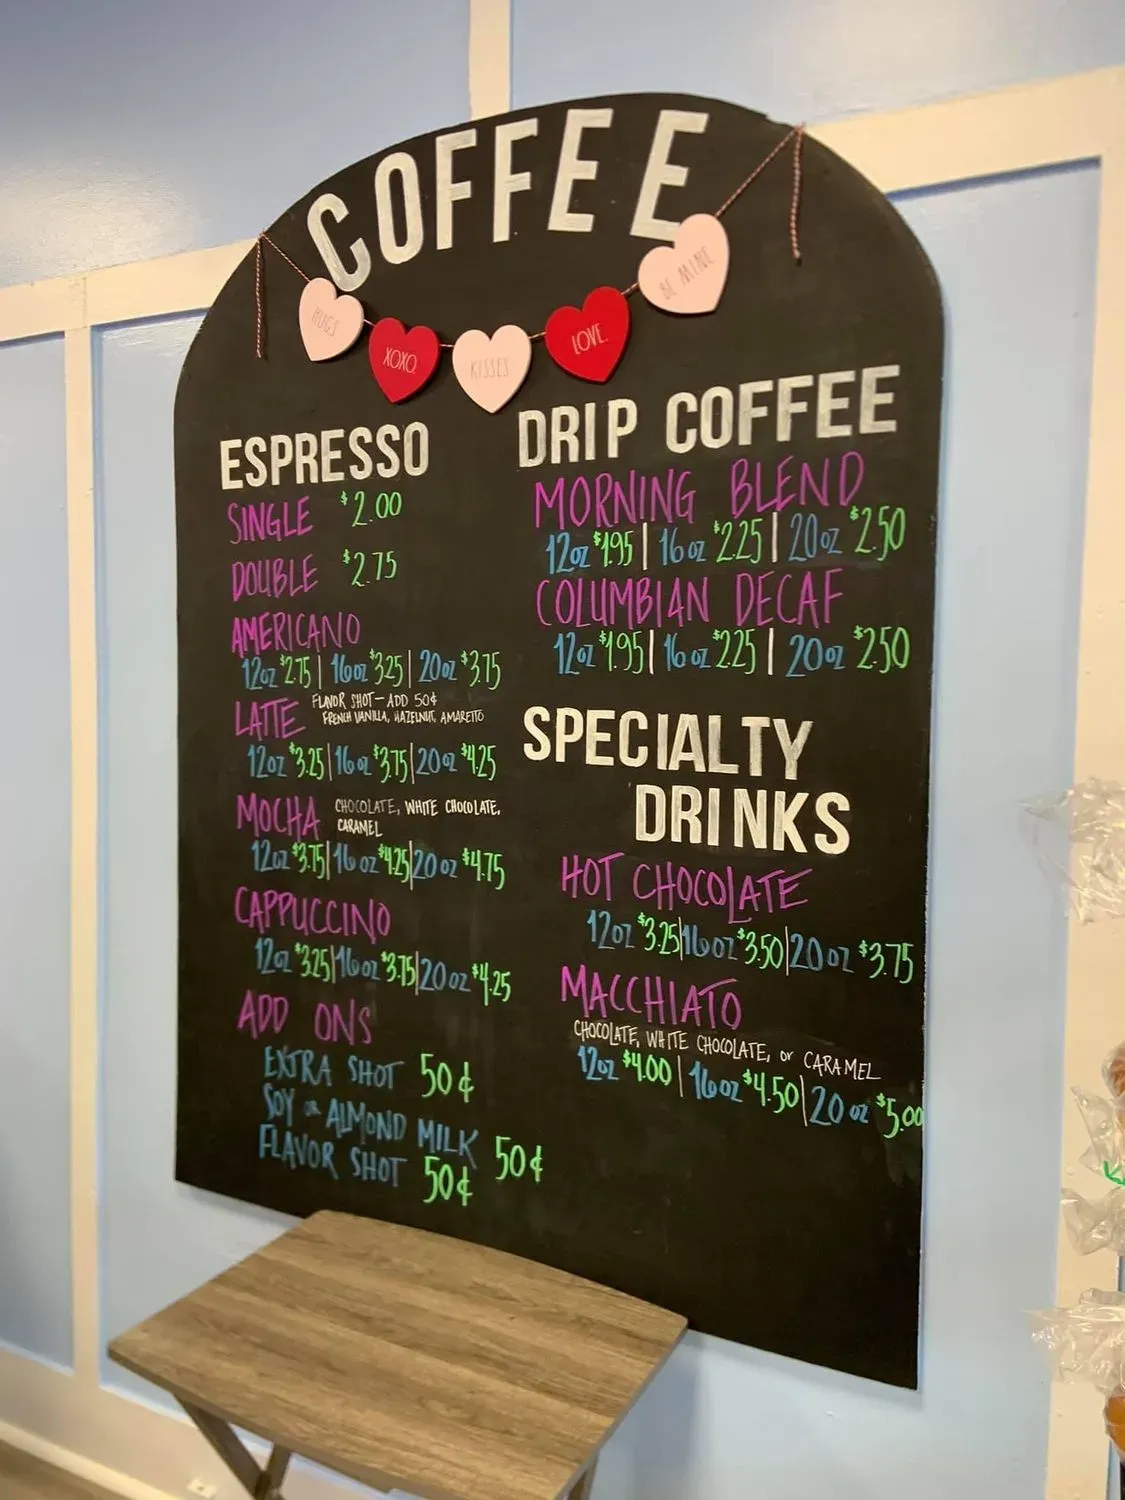 COFFEE
HUGS
XOXO.
KISSES
LOVE.
BE MINE
ESPRESSO
SINGLE $2.00
DOUBLE $2.75
AMERICANO
12oz $2.75 | 16oz $3.25 | 20oz $3.75
LATTE FLAVOR SHOT - ADD 50¢
FRENCH VANILLA, HAZELNUT, AMARETTO
12oz $3.25 | 16oz $3.75 | 20oz $4.25
MOCHA CHOCOLATE, WHITE CHOCOLATE,
CARAMEL
12oz $3.75 | 16oz $4.25 | 20oz $4.75
CAPPUCCINO
12oz $3.25 | 16oz $3.75 | 20oz $4.25
ADD ONS
EXTRA SHOT 50¢
SOY or ALMOND MILK 50¢
FLAVOR SHOT 50¢
DRIP COFFEE
MORNING BLEND
12oz $1.95 | 16oz $2.25 | 20oz $2.50
COLUMBIAN DECAF
12oz $1.95 | 16oz $2.25 | 20oz $2.50
SPECIALTY
DRINKS
HOT CHOCOLATE
12oz $3.25 | 16oz $3.50 | 20oz $3.75
MACCHIATO
CHOCOLATE, WHITE CHOCOLATE, or CARAMEL
12oz $4.00 | 16oz $4.50 | 20oz $5.00